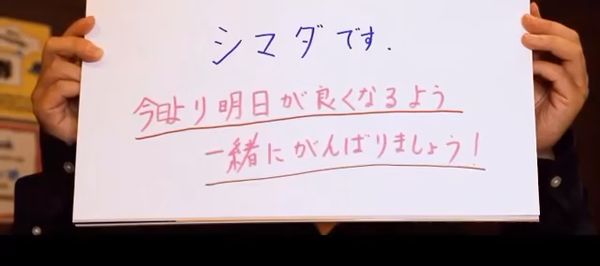 シマダです.
今日より明日が良くなるよう
一緒にがんばりましょう!